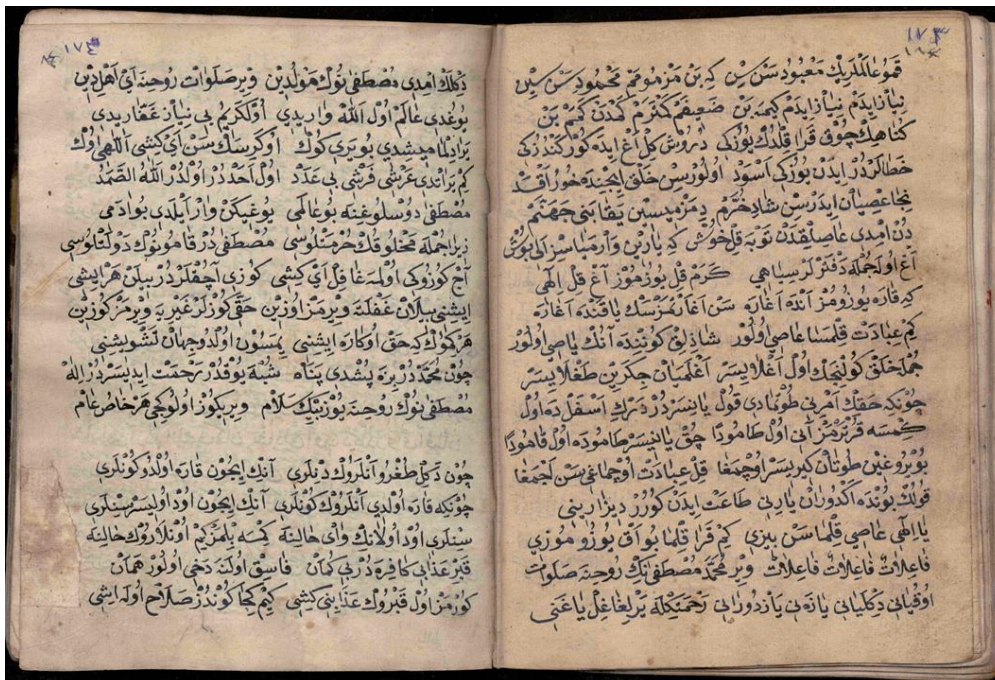 ١٧٣
قموعالملرك معبود سن سن كه بن مزمومم محمود سن سن
نيازايدم نيازايدم كيمه بن ضعيفم كمترم كمدن كمم بن
كناهك چوق قرا قلدك يوزكى درويش كل اغ ايده كور كندزكى
خطالردر ايدن يوزكى اسود اولورسن خلق ايچنده
نجا عصيان ايدرسن شاد خرم دمزميسن يقا بنى جهنم
دن امدى عاصلقدن توبه قل خوش
اغ اولجمله دفتر لرسياهى كرم قل يوزموز اغ قل الهى
كه قاره يوزومز انده اغاره سن اغارتمزسك يا قنده اغاره
كم عبادت قلمسا عاصى اولور شاذلق كوننده انك ياصى اولور
جمله خلق كولنجك اول اغلايسر اغلميان جكرين طغلايسر
چونكه حقك امرنى طوتمادى قول يانيسردر درك اسفلده اول
كمسه قرترمز انى اول طامودا چق يانيسر طاموده اول قامودا
بويروغين طوتان كيريسر اوچمغا قل عبادت اوچماغى سن اچمغا
قولك بونده اكدوران يادنى طاعت ايدن كورر ديذارينى
يا الهى عاصى قلما سن بيزى كم قرا قلما بو اق يوزوموزى
فاعلات فاعلات فاعلات وير محمد مصطفى نك روحنه صلوات
اوقيانى دكليانى يازانى يازدورانى رحمتكله يرلغاغل ياغنى
١٧٤
دكلك امدى مصطفى نوك مولدين ويرصلوات روحنه اى اهل دين
يوغدى عالم اول الله واريدى اول كريم بى نياز غفاريدى
يرادلمامشدى يوير كوك اوكرسك سن اى كشى اللهى اوك
كم يراتدى عرشى فرشى بى عدد اول احددر اولدر الله الصمد
مصطفى دوسلوغنه بو عالمى يوغيكن وار ايلدى بو ادمى
زيرا جمله مخلوقك حرمتلوسى مصطفى در قامونوك دولتلوسى
اچ كوزوكى اولمه غافل اى كيشى كوزى اچقلردر بيلن هر ايشى
ايشنى بيلان غفلته ويرمز اوزين حقى كوزلر غيريه ويرمز كوزين
هر كوك كه حق اوكاره ايشنى يمسون اولدوجهان تشويشنى
چون محمددر بزه پشدى پناه شبه يوقدر رحمت ايديسردر اله
مصطفى نوك روحنه يوزبيك سلام ويريكوز اولوكچى هر خاص عام
چون دكل طغرو انلروك دنلرى انك ايچون قاره اولدو كونلرى
چونكه قاره اولدى انلروك كونلرى انك ايچون اود اوليسر سنلرى
سنلرى اود اولانك واى حالينه كمسه بلمز كيم اونلاروك حالينه
قبر عذابى كافره در بى كمان فاسق اولنه دخى اولور همان
كورمز اول قبروك عذابنى كشى كيم كجا كوندز صلاح اوله ايشى